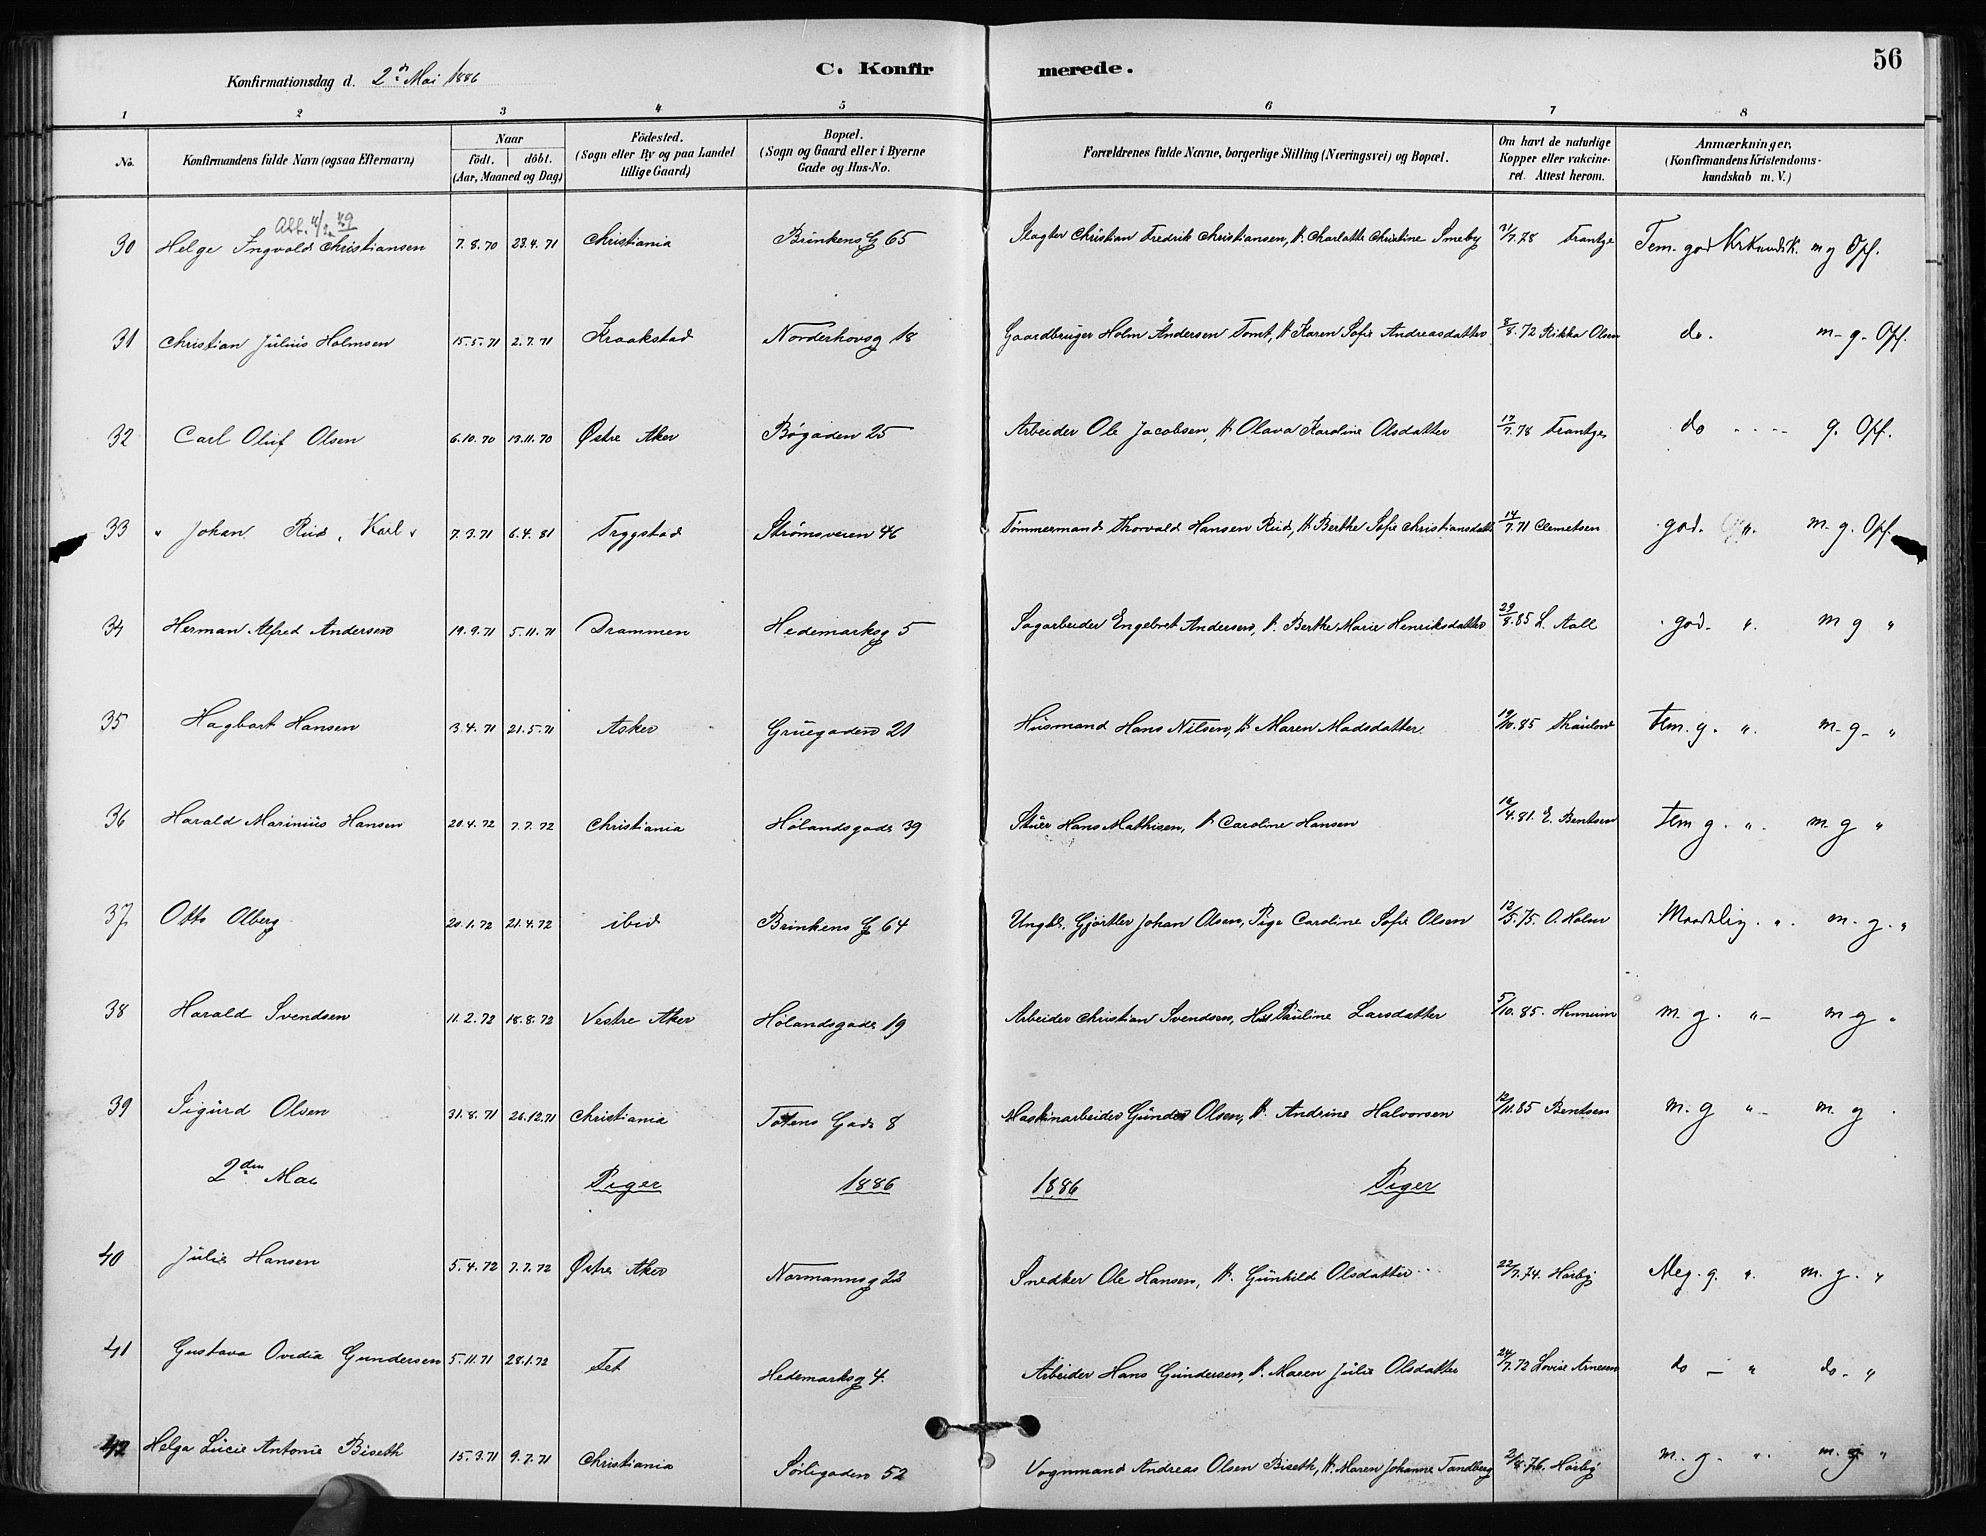 Konfirmationsdag d. 2den Mai 1886 C. Konfirmerede. 56
1 2 3 4 5 6 7 8
No. Konfirmandens fulde Navn (ogsaa Efternavn) Naar födt. döbt. (Aar, Maaned og Dag) Födested. (Sogn eller By og paa Landet tillige Gaard) Bopæl. (Sogn og Gaard eller i Byerne Gade og Hus-No. Forældrenes fulde Navne, borgerlige Stilling (Næringsvei) og Bopæl. Om havt de naturlige Kopper eller vakcineret. Attest herom. Anmærkninger. (Konfirmandens Kristendomskundskab m. V.)
30 Helge Ingvald Christiansen 7.8.70 23.4.71 Christiania Brinkens G 65 Slagter Christian Fredrik Christiansen, H. Charlotte Christine Smeby 11/7.78 Frantze Tem. god Krkundsk. m g Opf.
31 Christian Julius Holmsen 15.5.71 2.7.71 Kraakstad Norderhovsg 18 Gaardbruger Holm Andersen Tomt, H Karen Sofie Andreasdatter 8/8.72 Rikka Olsen do. m-g. Opf.
32 Carl Oluf Olsen 6.10.70 13.11.70 Østre Aker Bøgaden 25 Arbeider Ole Jacobsen, H Olava Karoline Olsdatter 17/7.78 Frantze do g. Opf.
33 " Johan Rud, Karl " 7.3.71 6.4.81 Trygstad Strømsveien 46 Tømmermand Thorvald Hansen Rud, H Berthe Sofie Christiansdatt 14/7.71 Clemetsen god. ". m-g. Opf.
34 Herman Alfred Andersen 19.9.71 5.11.71 Drammen Hedemarksg 5 Sagarbeider Engebret Andersen, H. Berthe Marie Henriksdatter 29/8.85 L. Aall god. ". m g "
35 Hagbart Hansen 3.4.71 21.5.71 Asker Gruegaden 21 Husmand Hans Nilsen, H Maren Madsdatter 19/10.85 Thaulow Tem. g. ". m-g- "
36 Harald Marinius Hansen 20.4.72 7.7.72 Christiania Hølandsgade 39 Stuer Hans Mathisen, H Caroline Hansen 18/4.81. E. Bentsen Tem g. ". m. g "
37 Otto Olberg 20.1.72 21.4.72 ibid Brinkens G 64 Ungk. Gjørtler Johan Olsen, Pige Caroline Sofie Olsen 12/5.75. O. Holm Maadelig. ". m. g. "
38 Harald Svendsen 11.2.72 18.8.72 Vestre Aker Hølandsgade 19 Arbeider Christian Svendsen, Hust Pauline Larsdatter 5/10.85. m. g. "- m g "
39 Sigurd Olsen 31.8.71 26.12.71 Christiania Totens Gade 8 Maskinarbeider Gunder Olsen, H. Andrine Halvorsen 12/11.85 Bentsen m. g "- m. g.
2den Mai Piger 1886 1886 Piger
40 Julie Hansen 5.4.72 7.7.72 Østre Aker Normannsg 23 Snedker Ole Hansen, H. Gunhild Olsdatter 22/7.74. Hørbÿ Meg. g. ". m. g. "
41 Gustava Ovidia Gundersen 5.11.71 28.1.72 Fet Hedemarksg 4. Arbeider Hans Gundersen, H. Maren Julie Olsdatter 24/7.72 Lovise Arnesen do - " do. "
42 Helga Lucie Antonie Biseth 15.3.71 9.7.71 Christiania Sørligaden 52 Vognmand Andreas Olsen Biseth, H. Maren Johanne Tandberg 2/8.76. Hørbÿ m. g. ". m. g "